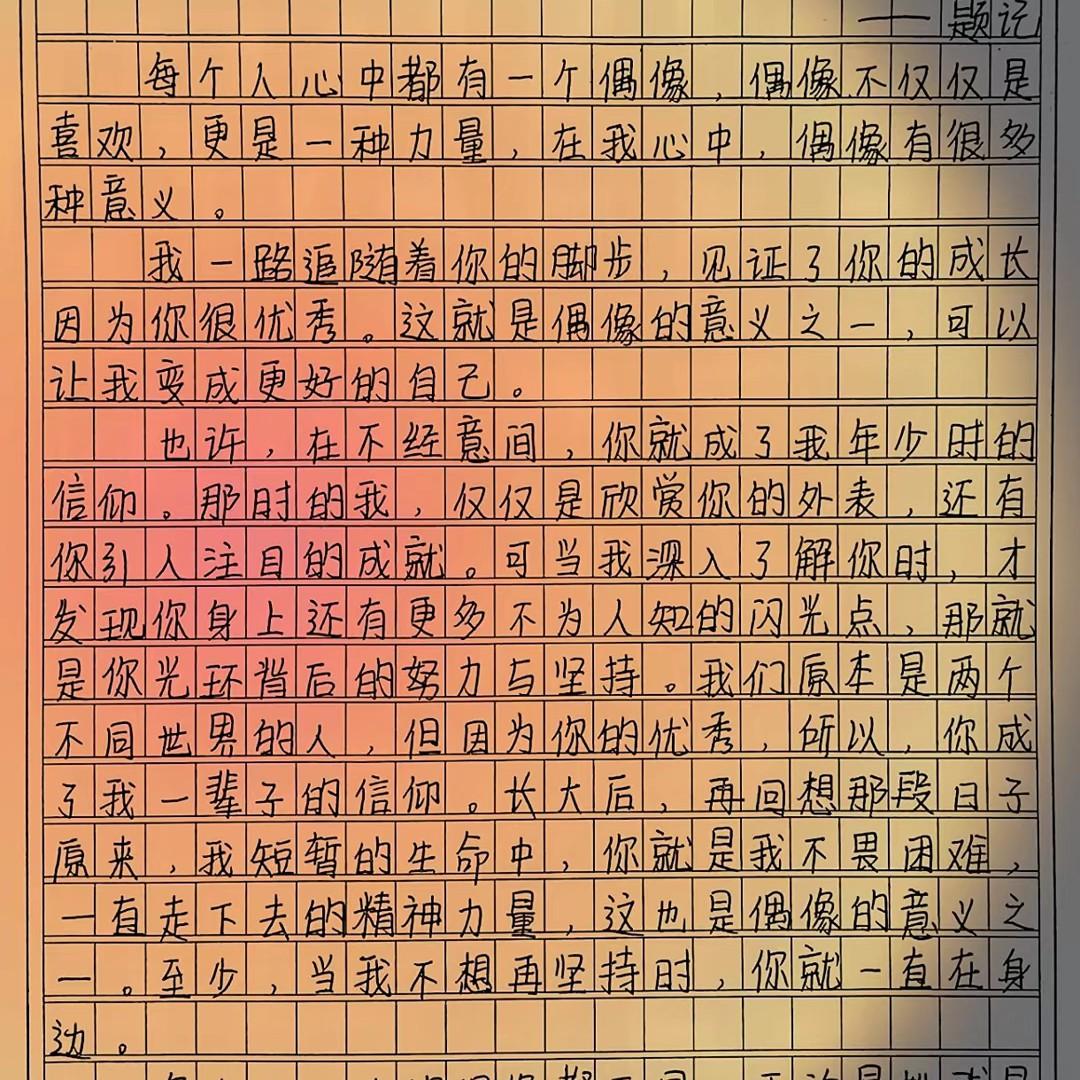 ——题记
每个人心中都有一个偶像，偶像不仅仅是
喜欢，更是一种力量，在我心中，偶像有很多
种意义。
我一路追随着你的脚步，见证了你的成长
因为你很优秀。这就是偶像的意义之一，可以
让我变成更好的自己。
也许，在不经意间，你就成了我年少时的
信仰。那时的我，仅仅是欣赏你的外表，还有
你引人注目的成就。可当我深入了解你时，才
发现你身上还有更多不为人知的闪光点，那就
是你光环背后的努力与坚持。我们原本是两个
不同世界的人，但因为你的优秀，所以，你成
了我一辈子的信仰。长大后，再回想那段日子
原来，我短暂的生命中，你就是我不畏困难，
一直走下去的精神力量，这也是偶像的意义之
一。至少，当我不想再坚持时，你就一直在身
边。